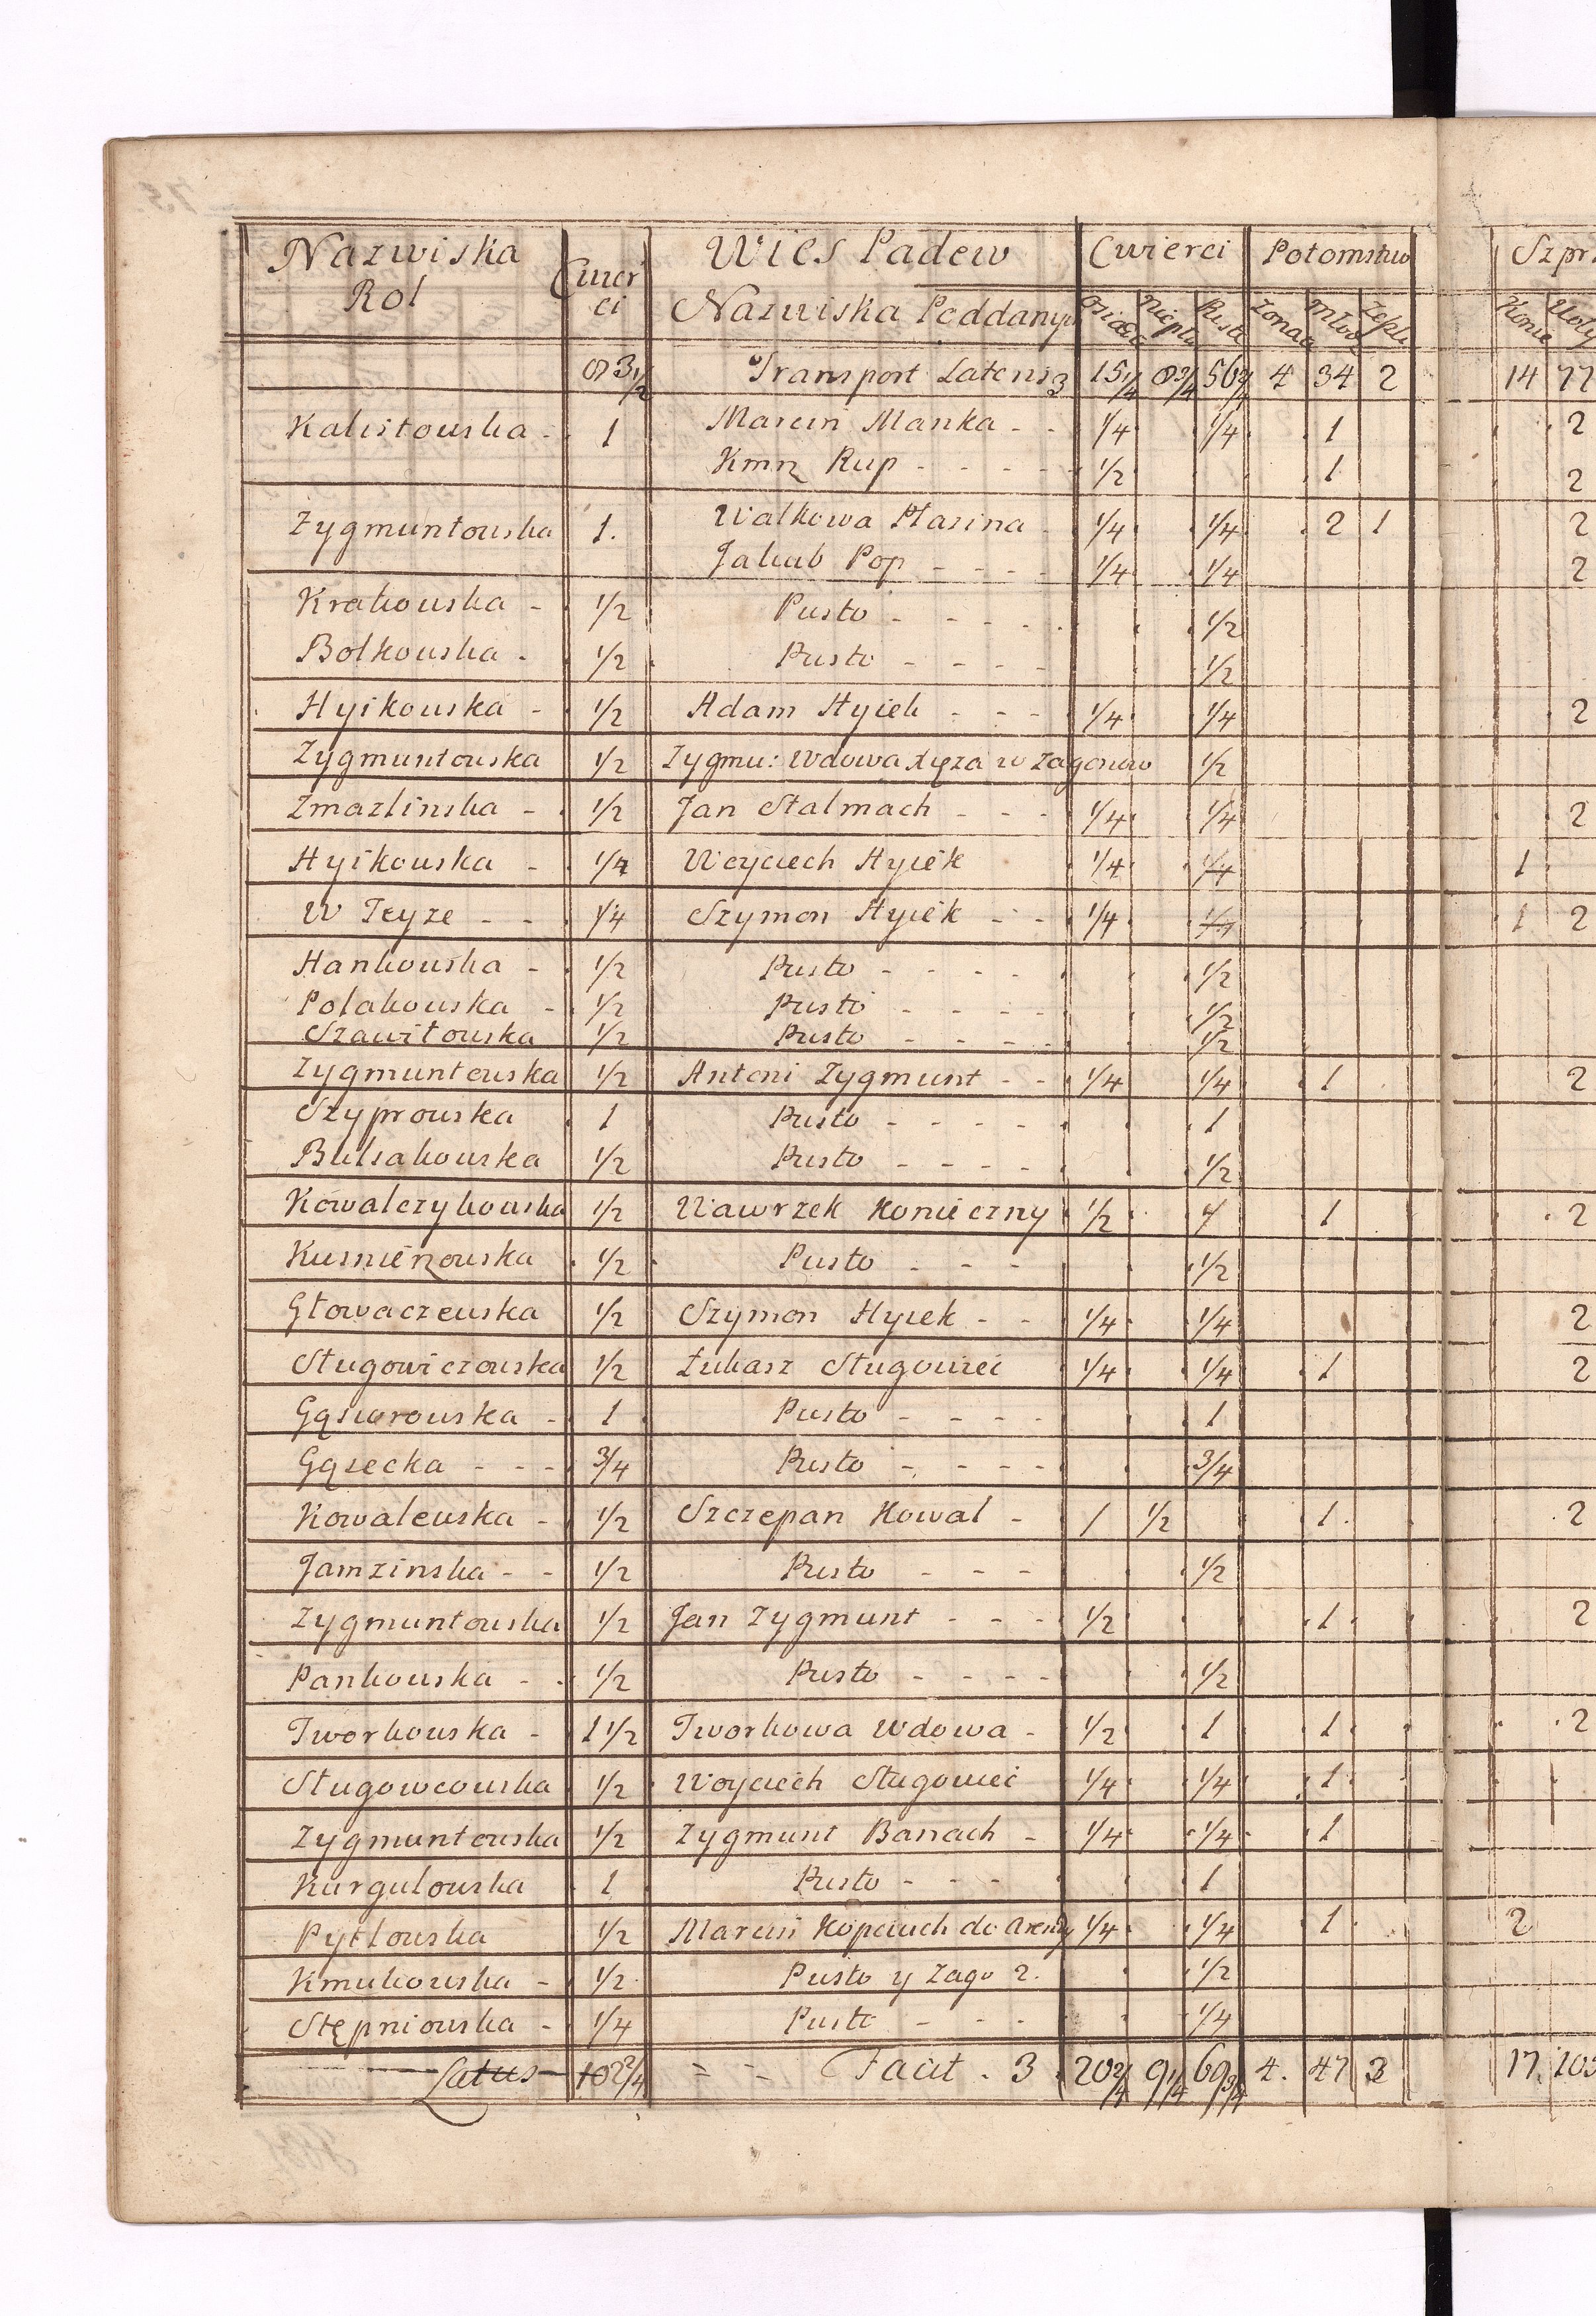 Nazwiska Rol | Cwierci | Wies Padew | Cwierci | Potomstwo | Szpr
Nazwiska Poddanych | Osiadła | Pusta | Zonaa | Młoz | Konie | Woły
83 1/2 | Transport Latens 3 | 15 1/4 | 8 3/4 | 56 2/4 | 4 | 34 | 2 | 14 | 77
Kalistowska - 1 | Marcin Manka - - | 1/4 | 1/4 | 1 | 2
Kmn Rup - - - - | 1/2 | 1 | 2
Zygmuntowska | 1. | Walkowa Ptasina | 1/4 | 1/4 | 2 | 1 | 2
Jakub Pop - - - - | 1/4 | 1/4 | 2
Krakowska - | 1/2 | Pusto - - - - | 1/2
Bolkowska - | 1/2 | Pusto - - - - | 1/2
Hyikowska - | 1/2 | Adam Hyiek - - - | 1/4 | 1/4 | 2
Zygmuntowska | 1/2 | Zygmu: Wdowa Xyza w Zagonow | 1/2
Zmazlinska - | 1/2 | Jan Stalmach - - - | 1/4 | 1/4 | 2
Hyikowska - | 1/4 | Woyciech Hyiek | 1/4 | 1/4 | 1
W Teyze - - | 1/4 | Szymon Hyiek - - | 1/4 | 1/4 | 1 | 2
Hankowska - | 1/2 | Pusto - - - - | 1/2
Polakowska - | 1/2 | Pusto - - - - | 1/2
Szawitowska | 1/2 | Pusto - - - - | 1/2
Zygmuntowska | 1/2 | Antoni Zygmunt - - | 1/4 | 1/4 | 1 | 2
Szyprowska | 1 | Pusto - - - - | 1
Bulsakowska | 1/2 | Pusto - - - - | 1/2
Kowalczykowska | 1/2 | Wawrzek Konieczny | 1/2 | 1 | 2
Kusnierzowska | 1/2 | Pusto - - - | 1/2
Głowaczewska | 1/2 | Szymon Hyiek - - | 1/4 | 1/4 | 2
Sługowiczowska | 1/2 | Łukasz Sługowiec | 1/4 | 1/4 | 1 | 2
Gąsiorowska - | 1 | Pusto - - - - | 1
Gąsecka - - - | 3/4 | Pusto - - - - | 3/4
Kowalewska - | 1/2 | Szczepan Kowal - | 1 | 1/2 | 1 | 2
Jamzinska - - | 1/2 | Pusto - - - | 1/2
Zygmuntowska | 1/2 | Jan Zygmunt - - - | 1/2 | 1 | 2
Pankowska - - | 1/2 | Pusto - - - - | 1/2
Tworkowska - | 1 1/2 | Tworkowa Wdowa - | 1/2 | 1 | 1 | 2
Sługowcowska | 1/2 | Woyciech Sługowiec | 1/4 | 1/4 | 1
Zygmuntowska | 1/2 | Zygmunt Banach - | 1/4 | 1/4 | 1
Kurgulowska | 1 | Pusto - - - | 1
Pytlowska | 1/2 | Marcin Kopciuch do Arendy | 1/4 | 1/4 | 1 | 2
Kmukowska - | 1/2 | Pusto y Zago 2. | 1/2
Stępniowska - | 1/4 | Pusto - - - | 1/4
Latus | 102 2/4 | = - Facit . 3 | 20 2/4 | 9 1/4 | 69 3/4 | 4. | 47 | 3 | 17. | 103